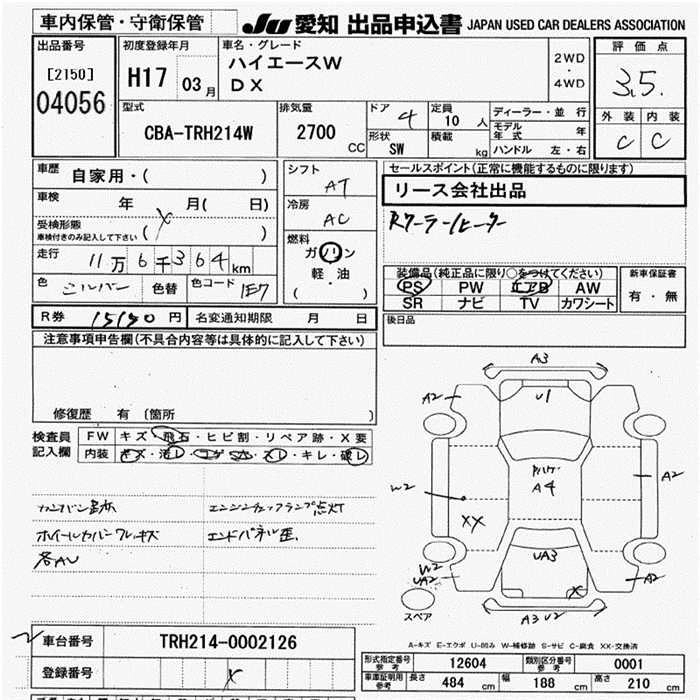 車内保管・守衛保管 JU 愛知 出品申込書 JAPAN USED CAR DEALERS ASSOCIATION
出品番号 初度登録年月 車名・グレード 評価点
[2150] H17 03月 ハイエースW 2WD・4WD 3.5.
04056 DX
型式 排気量 ドア 4 定員 10人 ディーラー・並行 外装 内装
CBA-TRH214W 2700 CC 形状 SW 積載 kg モデル年式 年 C C
ハンドル 左・右
車歴 自家用・( ) シフト AT セールスポイント(正常に機能するものに限ります)
車検 年 月( 日) 冷房 AC リース会社出品
受検形態 ( ) Rクーラー/ヒーター
車検付きのみ記入して下さい
走行 11万6千364km 燃料 ガソリン
軽・油
( )
装備品(純正品に限り○をつけてください) 新車保証書
色 シルバー 色替 色コード 1E7 PS PW エアB AW 有・無
SR ナビ TV カワシート
R券 15190円 名変通知期限 月 日 後日品
注意事項申告欄(不具合内容等は具体的に記入して下さい)
修復歴 有 (箇所 )
検査員記入欄 FW キズ・飛石・ヒビ割・リペア跡・X要
内装 キズ・汚レ・コゲ穴・スレ・キレ・破レ
カンバン跡 エンジンチェックランプ点灯
ホイールカバーワレ、キズ エンドパネル歪
各AU
A3
A2 U1 A2
A4
W2 A2
XX
UA3
W2
UA2 X A2
スペア A3U2
車台番号 TRH214-0002126
登録番号 X
A-キズ E-エクボ U-凹み W-補修跡 S-サビ C-腐食 XX-交換済
形式指定番号 参考 12604 類別区分番号 参考 0001
車庫証明用 参考 長さ 484 cm 幅 188 cm 高さ 210 cm